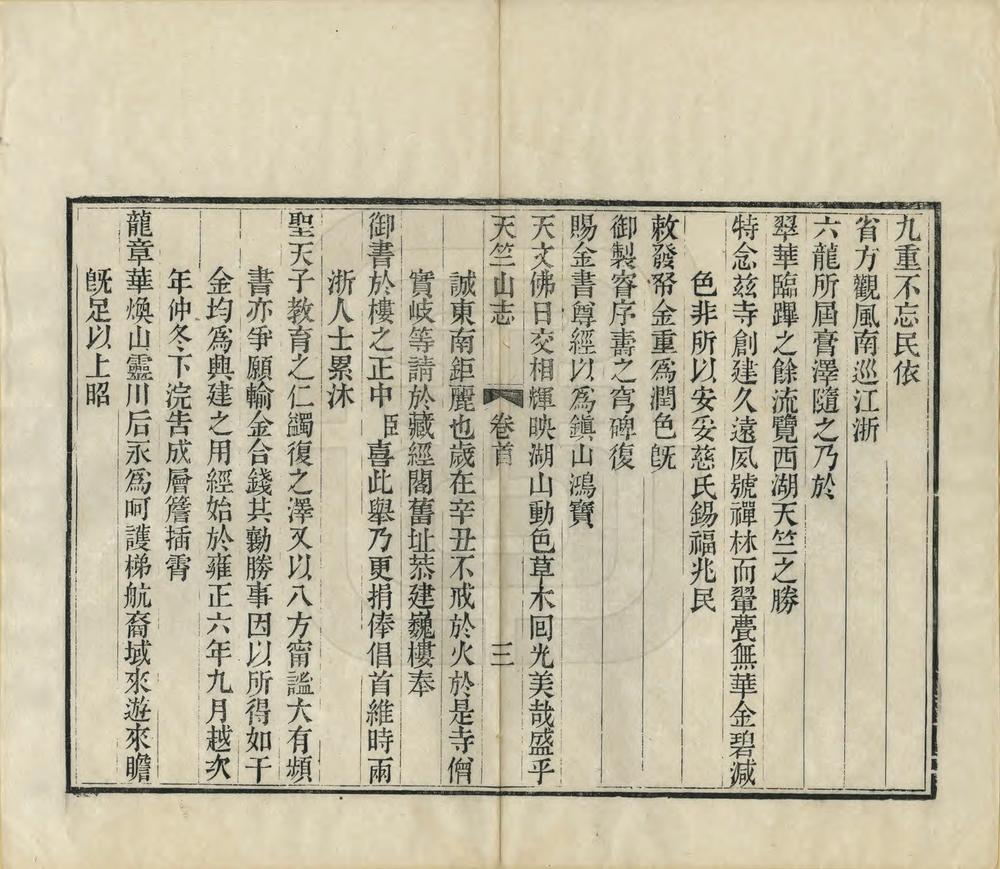 九重不忘民依
省方觀風南巡江浙
六龍所屆膏澤隨之乃於
翠華臨蹕之餘流覽西湖天竺之勝
特念茲寺創建久遠夙號禪林而翬甍無華金碧減
色非所以安妥慈氏錫福兆民
敕發帑金重爲潤色旣
御製睿序壽之穹碑復
賜金書尊經以爲鎮山鴻寶
天文佛日交相輝映湖山動色草木回光美哉盛乎
天竺山志 卷首 三
誠東南鉅麗也歲在辛丑不戒於火於是寺僧
實岐等請於藏經閣舊址恭建巍樓奉
御書於樓之正中臣喜此舉乃更捐俸倡首維時兩
浙人士累沐
聖天子教育之仁蠲復之澤又以八方甯謐大有頻
書亦爭願輸金合錢共勷勝事因以所得如干
金均爲興建之用經始於雍正六年九月越次
年仲冬下浣告成層簷插霄
龍章華煥山靈川后永爲呵護梯航裔域來遊來瞻
旣足以上昭